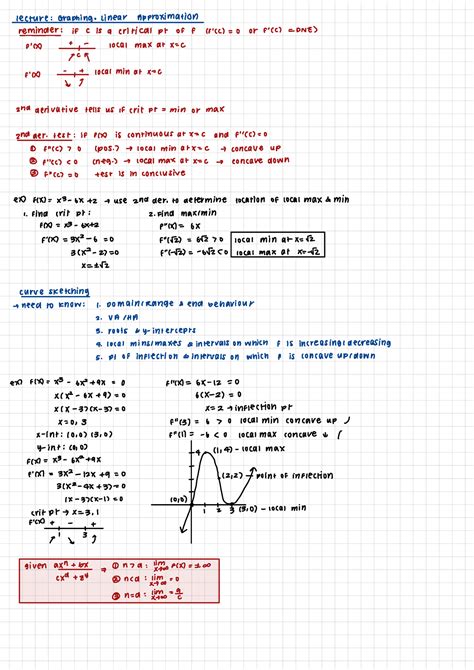 lecture: Graphing + Linear Approximation
reminder: if c is a critical pt of f (f'(c) = 0 or f'(c) = DNE)
f'(x) + - local max at x=c
c
f'(x) - + local min at x=c
2nd derivative tells us if crit pt = min or max
2nd der. test: if f(x) is continuous at x=c and f'(c)=0
① f"(c) > 0 (pos.) → local min at x=c → concave up
② f"(c) < 0 (neg.) → local max at x=c → concave down
③ f"(c) = 0 test is inconclusive
ex) f(x) = x³ - 6x + 2 → use 2nd der. to determine location of local max & min
1. Find crit pt: 2. Find max/min
f(x) = x³ - 6x + 2 f"(x) = 6x
f'(x) = 3x² - 6 = 0 f"(√2) = 6√2 > 0 local min at x=√2
3(x² - 2) = 0 f"(-√2) = -6√2 < 0 local max at x=-√2
x = ±√2
curve sketching
→ need to know: 1. Domain/range & end behaviour
2. VA/HA
3. roots & y-intercepts
4. local mins/maxes & intervals on which f is increasing/decreasing
5. pt of inflection & intervals on which f is concave up/down
ex) f(x) = x³ - 6x² + 9x = 0 f"(x) = 6x - 12 = 0
x(x² - 6x + 9) = 0 6(x-2) = 0
x(x-3)(x-3) = 0 x = 2 → inflection pt
x = 0, 3 f"(3) = 6 > 0 local min concave up
x-int: (0,0) (3,0) f"(1) = -6 < 0 local max concave
y-int: (0,0)
f(x) = x³ - 6x² + 9x 4 (1,4) - local max
f'(x) = 3x² - 12x + 9 = 0
3(x² - 4x + 3) = 0 (2,2) → point of inflection
(x-3)(x-1) = 0 (0,0)
crit pt → x = 3, 1 1 2 3 (3,0) - local min
f'(x) + - +
1 3
given ax^n + bx / cx^d + zy ⇒ ① n>d: lim x→∞ f(x) = ±∞
② n<d: lim x→∞ = 0
③ n=d: lim x→∞ = a/c